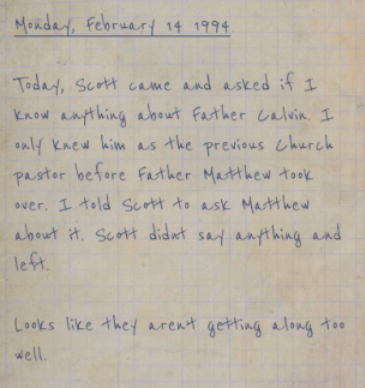 Monday, February 14 1994
Today, Scott came and asked if I
know anything about Father Calvin. I
only knew him as the previous church
pastor before Father Matthew took
over. I told Scott to ask Matthew
about it. Scott didnt say anything and
left.
Looks like they arent getting along too
well.